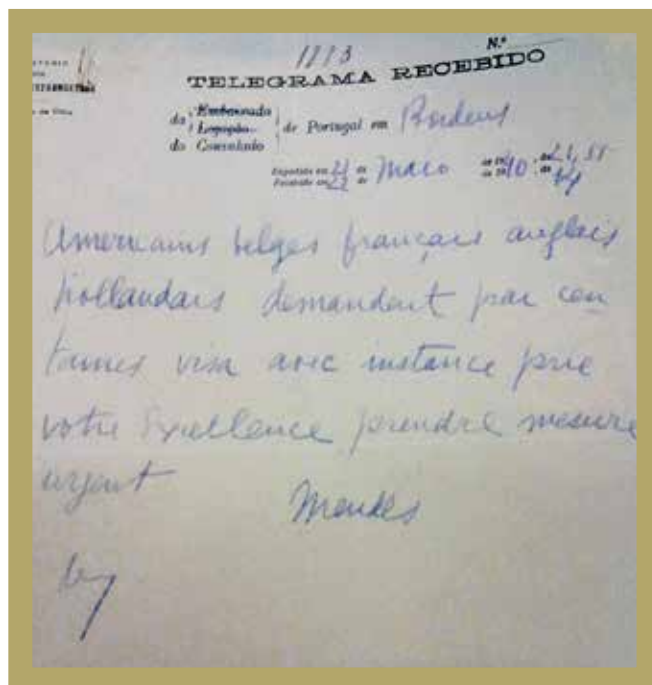 1113
Nº
TELEGRAMA RECEBIDO
da Embaixada
Legação de Portugal em Bordeus
do Consulado
Expedido em 21 de Maio de 1940
Recebido em de
Americains belges français anglais
hollandais demandent par cen
taines visa avec instance prie
votre Excellence prendre mesure
urgent
Mendes